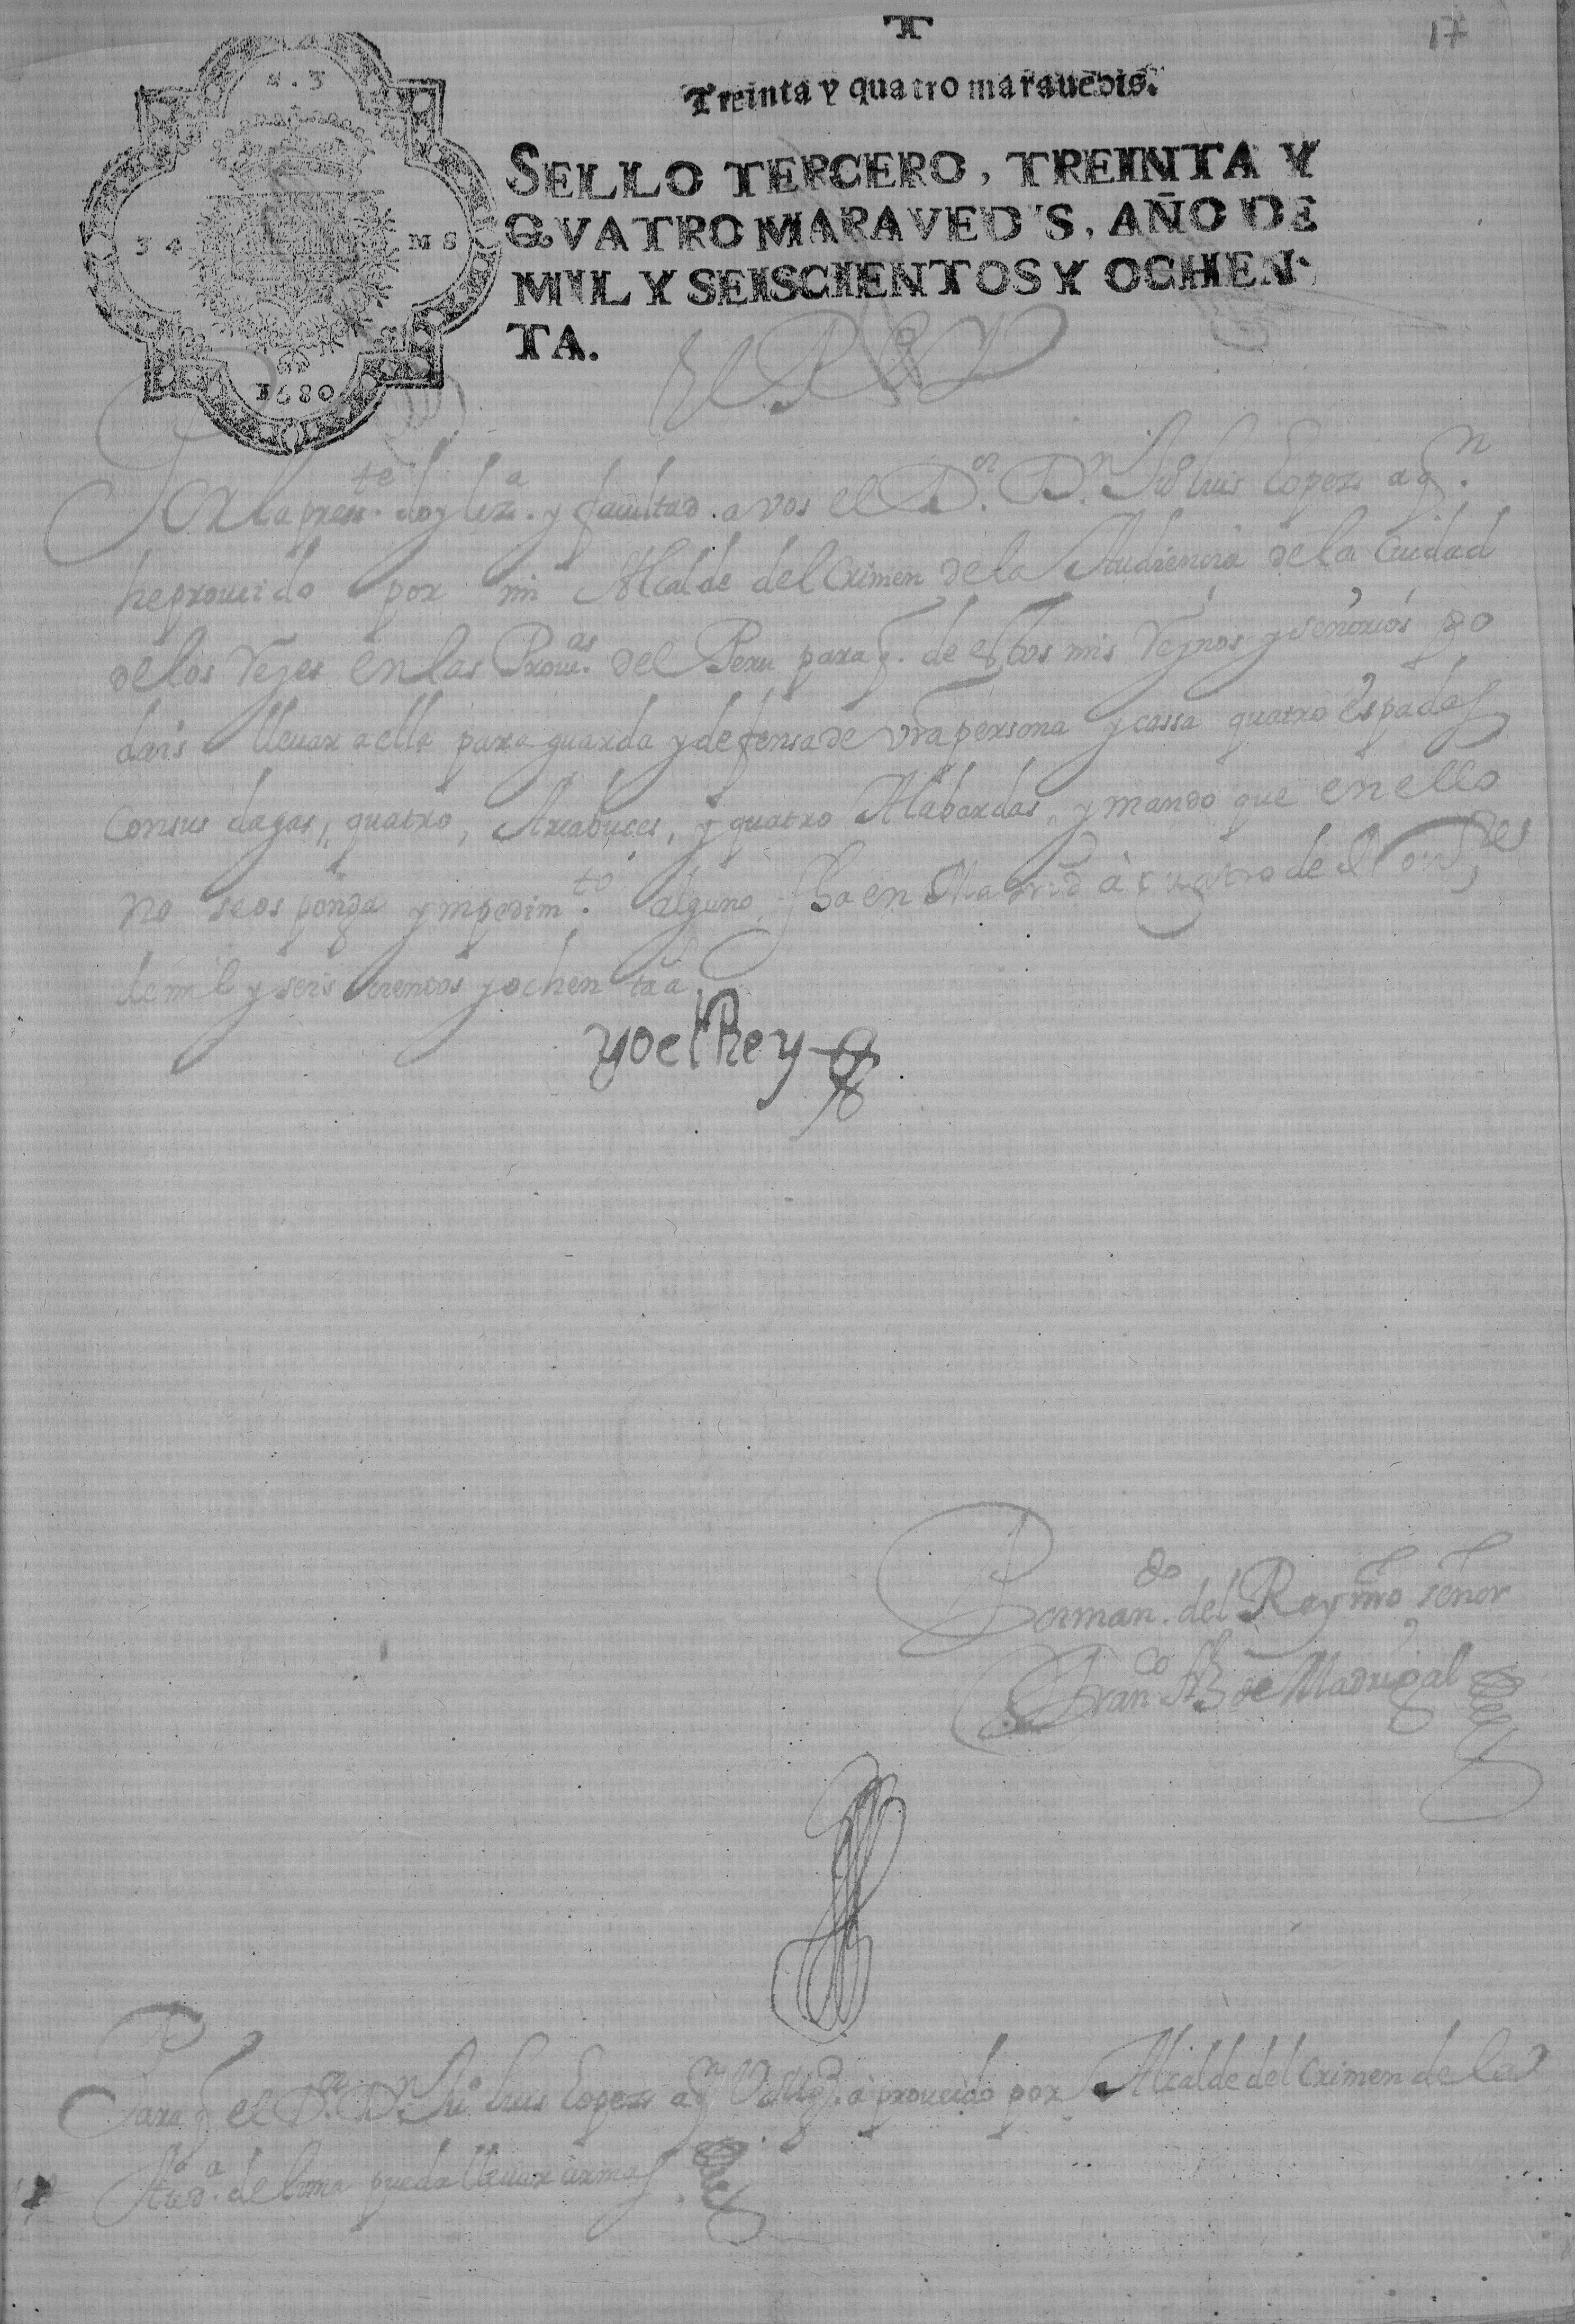 17
Treinta y quatro marauedis.
S. 3
34 MS
1680
SELLO TERCERO, TREINTA Y
QVATRO MARAVED'S, AÑO DE
MIL Y SEISCIENTOS Y OCHEN-
TA.
El Rey
Por la preste. doy liza. y facultad a vos el Dor. Dn. Juo luis Lopez a qn.
he proueido por mi Alcalde del Crimen de la Audiencia de la Ciudad
de los Reyes en las Prouas. del Peru para q. de estos mis Reynos y señorios po
dais lleuar a ella para guarda y defensa de vra persona y cassa quatro espadas
con sus dagas, quatro, Arcabuces, y quatro Alabardas, y mando que en ello
no se os ponga ympedimto. alguno fha en Madrid à quatro de
de mil y seis cientos y ochenta
Yo el Rey
Por mando. del Rey nro señor
Franco de Madrigal
Para q el Dor. Dn. Juo luis Lopez a qn V. Mgd. à proueido por Alcalde del Crimen de la
Auda. de lima pueda lleuar armas